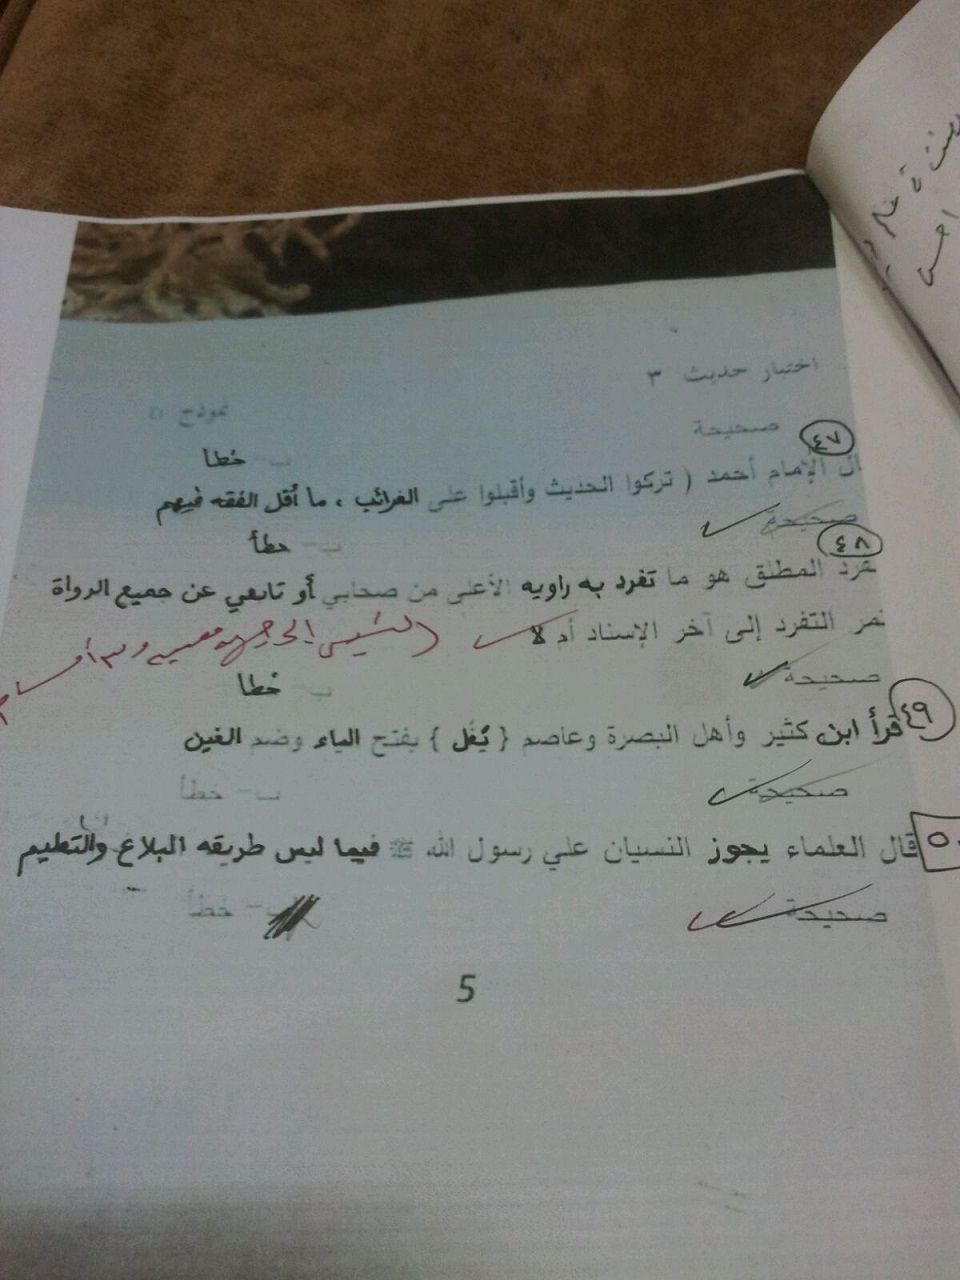 اختبار حديث ٣
نموذج
صحيحة
ب- خطأ
٤٧
ال الإمام أحمد ( تركوا الحديث وأقبلوا على الغرائب ، ما أقل الفقه فيهم
صحيحة
ب- خطأ
٤٨
فرد المطلق هو ما تفرد به راويه الأعلى من صحابي أو تابعي عن جميع الرواة
تمر التفرد إلى آخر الإسناد أم لا
صحيحة
ب- خطأ
٤٩
قرأ ابن كثير وأهل البصرة وعاصم { يُغل } بفتح الياء وضم الغين
صحيحة
ب- خطأ
٥٠
قال العلماء يجوز النسيان علي رسول الله ﷺ فيما ليس طريقه البلاغ والتعليم
صحيحة
ب- خطأ
5